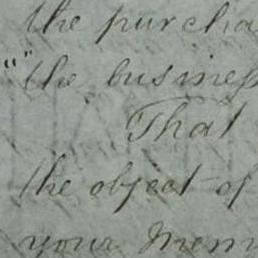 the purcha
"the business
That
the object of
your Mem